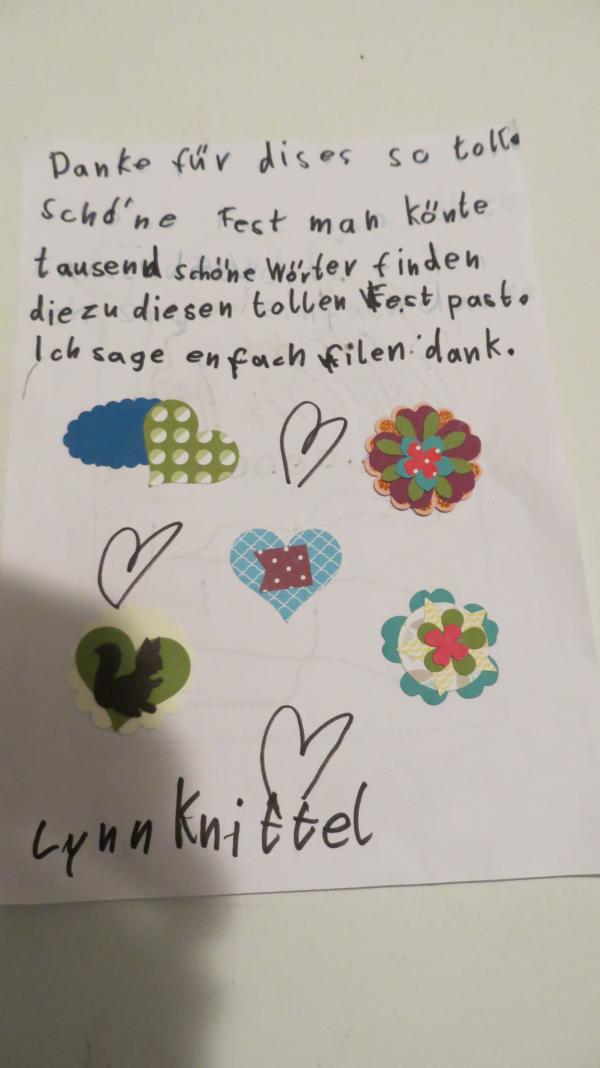 Danke für dises so tolle
schöne Fest man könte
tausend schöne Wörter finden
die zu diesen tollen Fest past.
Ich sage enfach filen dank.
Lynn Knittel